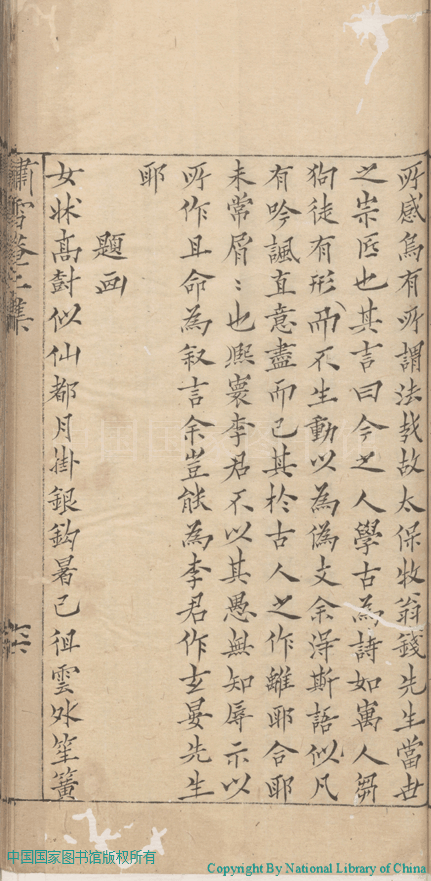 所感焉有所謂法哉故太保牧翁錢先生當世
之崇匠也其言曰今之人學古為詩如寓人芻
狗徒有形而不生動以為偽文余淂斯語似凡
有吟諷直意盡而已其於古人之作離耶合耶
未嘗屑〻也熈寰李君不以其愚無知辱示以
所作且命為叙言余豈能為李君作玄晏先生
耶
題画
女牀髙對似仙都月掛銀鈎暑已徂雲外笙簧
嘯雪菴二集
中国国家图书馆版权所有
Copyright By National Library of China